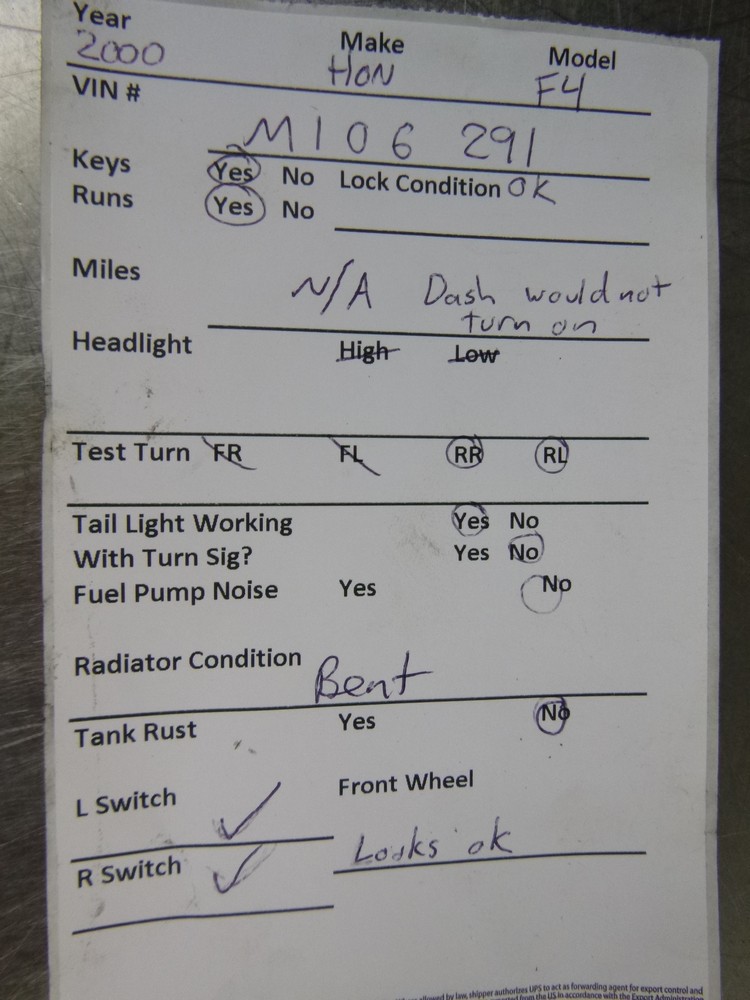 Year Make Model
2000 HON F4
VIN #
M106 291
Keys Yes No Lock Condition OK
Runs Yes No
Miles N/A Dash would not
turn on
Headlight High Low
Test Turn FR FL RR RL
Tail Light Working Yes No
With Turn Sig? Yes No
Fuel Pump Noise Yes No
Radiator Condition Bent
Tank Rust Yes No
L Switch ✓ Front Wheel
R Switch ✓ Looks ok
allowed by law, shipper authorizes UPS to act as forwarding agent for export control and
from the US in accordance with the Export Administration